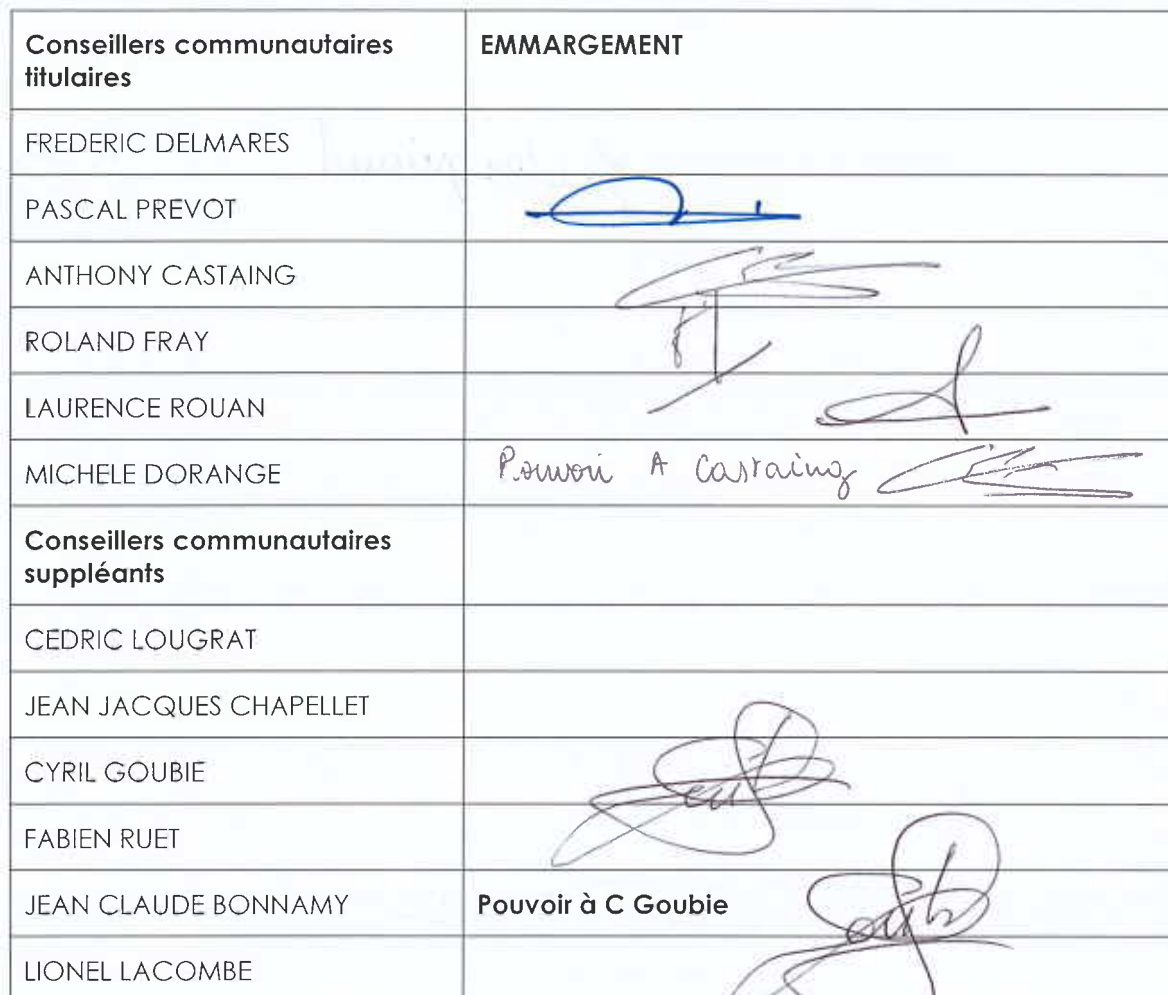 Conseillers communautaires
titulaires
EMMARGEMENT
FREDERIC DELMARES
PASCAL PREVOT
ANTHONY CASTAING
ROLAND FRAY
LAURENCE ROUAN
MICHELE DORANGE
Pouvoir A Castaing
Conseillers communautaires
suppléants
CEDRIC LOUGRAT
JEAN JACQUES CHAPELLET
CYRIL GOUBIE
FABIEN RUET
JEAN CLAUDE BONNAMY
Pouvoir à C Goubie
LIONEL LACOMBE